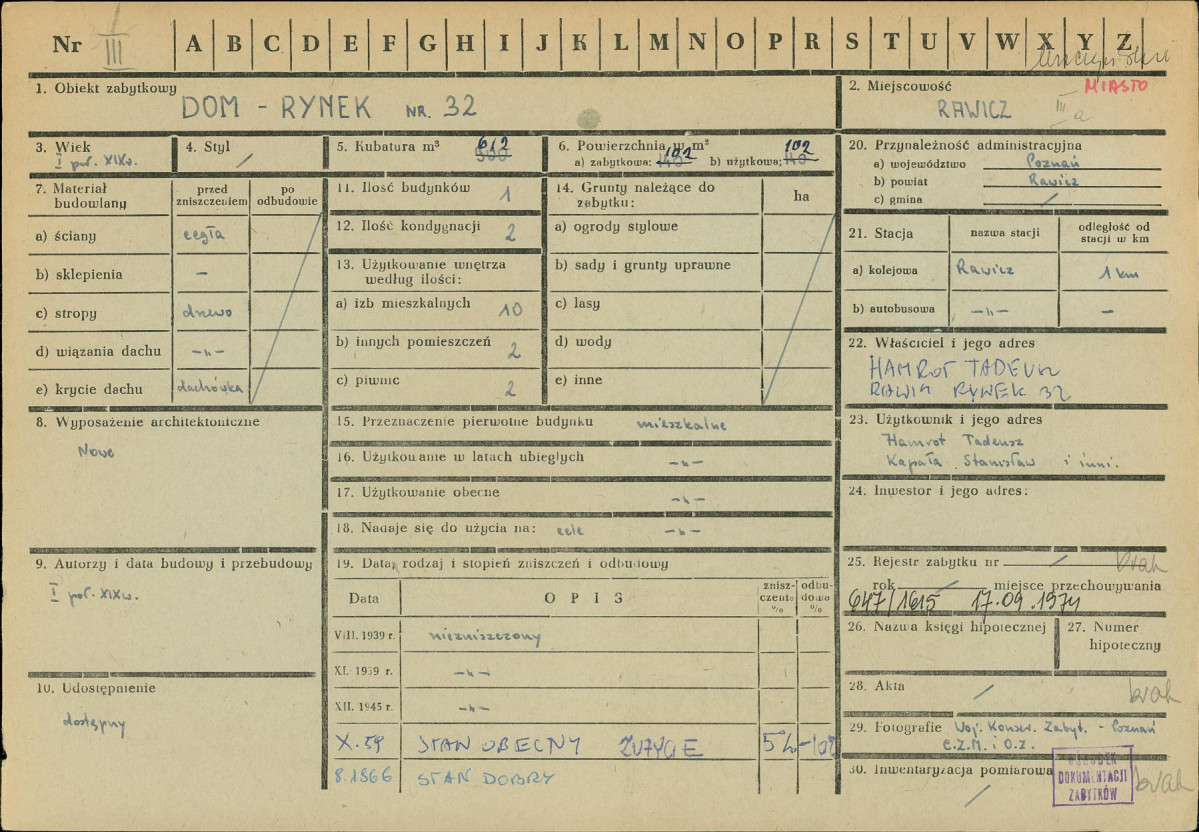 Nr III A B C D E F G H I J K L M N O P R S T U V W X Y Z
1. Obiekt zabytkowy
DOM - RYNEK NR. 32
2. Miejscowość MIASTO
RAWICZ III a
3. Wiek
I poł. XIXw.
4. Styl /
5. Kubatura m³ 612
6. Powierzchnia w m²
a) zabytkowa: 102 b) użytkowa: 102
7. Materiał budowlany
przed zniszczeniem
po odbudowie
a) ściany cegła
b) sklepienia –
c) stropy drzewo
d) wiązania dachu –„–
e) krycie dachu dachówka
8. Wyposażenie architektoniczne
Nowe
9. Autorzy i data budowy i przebudowy
I poł. XIXw.
10. Udostępnienie
dostępny
11. Ilość budynków 1
12. Ilość kondygnacji 2
13. Użytkowanie wnętrza
według ilości:
a) izb mieszkalnych 10
b) innych pomieszczeń 2
c) piwnic 2
14. Grunty należące do
zabytku:
ha
a) ogrody stylowe
b) sady i grunty uprawne
c) lasy
d) wody
e) inne
15. Przeznaczenie pierwotne budynku mieszkalne
16. Użytkowanie w latach ubiegłych –„–
17. Użytkowanie obecne –„–
18. Nadaje się do użycia na: cele –„–
19. Data, rodzaj i stopień zniszczeń i odbudowy
Data
OPIS
znisz-
czenie
%
odbu-
dowa
%
VIII. 1939 r. niezniszczony
XI. 1939 r. –„–
XII. 1945 r. –„–
X. 59 STAN OBECNY ZUŻYCIE
8.1966 STAN DOBRY
20. Przynależność administracyjna
a) województwo Poznań
b) powiat Rawicz
c) gmina /
21. Stacja
nazwa stacji
odległość od
stacji w km
a) kolejowa Rawicz 1 km
b) autobusowa –„– –
22. Właściciel i jego adres
HAMROT TADEUSZ
RAWICZ RYNEK 32
23. Użytkownik i jego adres
Hamrot Tadeusz
Kapała Stanisław i inni.
24. Inwestor i jego adres:
25. Rejestr zabytku nr / brak
rok / miejsce przechowywania
647/1615 17.09.1974
26. Nazwa księgi hipotecznej
27. Numer
hipoteczny
28. Akta / brak
29. Fotografie Woj. Konser. Zabyt. - Poznań
C.Z.M. i O.Z.
30. Inwentaryzacja pomiarowa
/ brak
OŚRODEK
DOKUMENTACJI
ZABYTKÓW